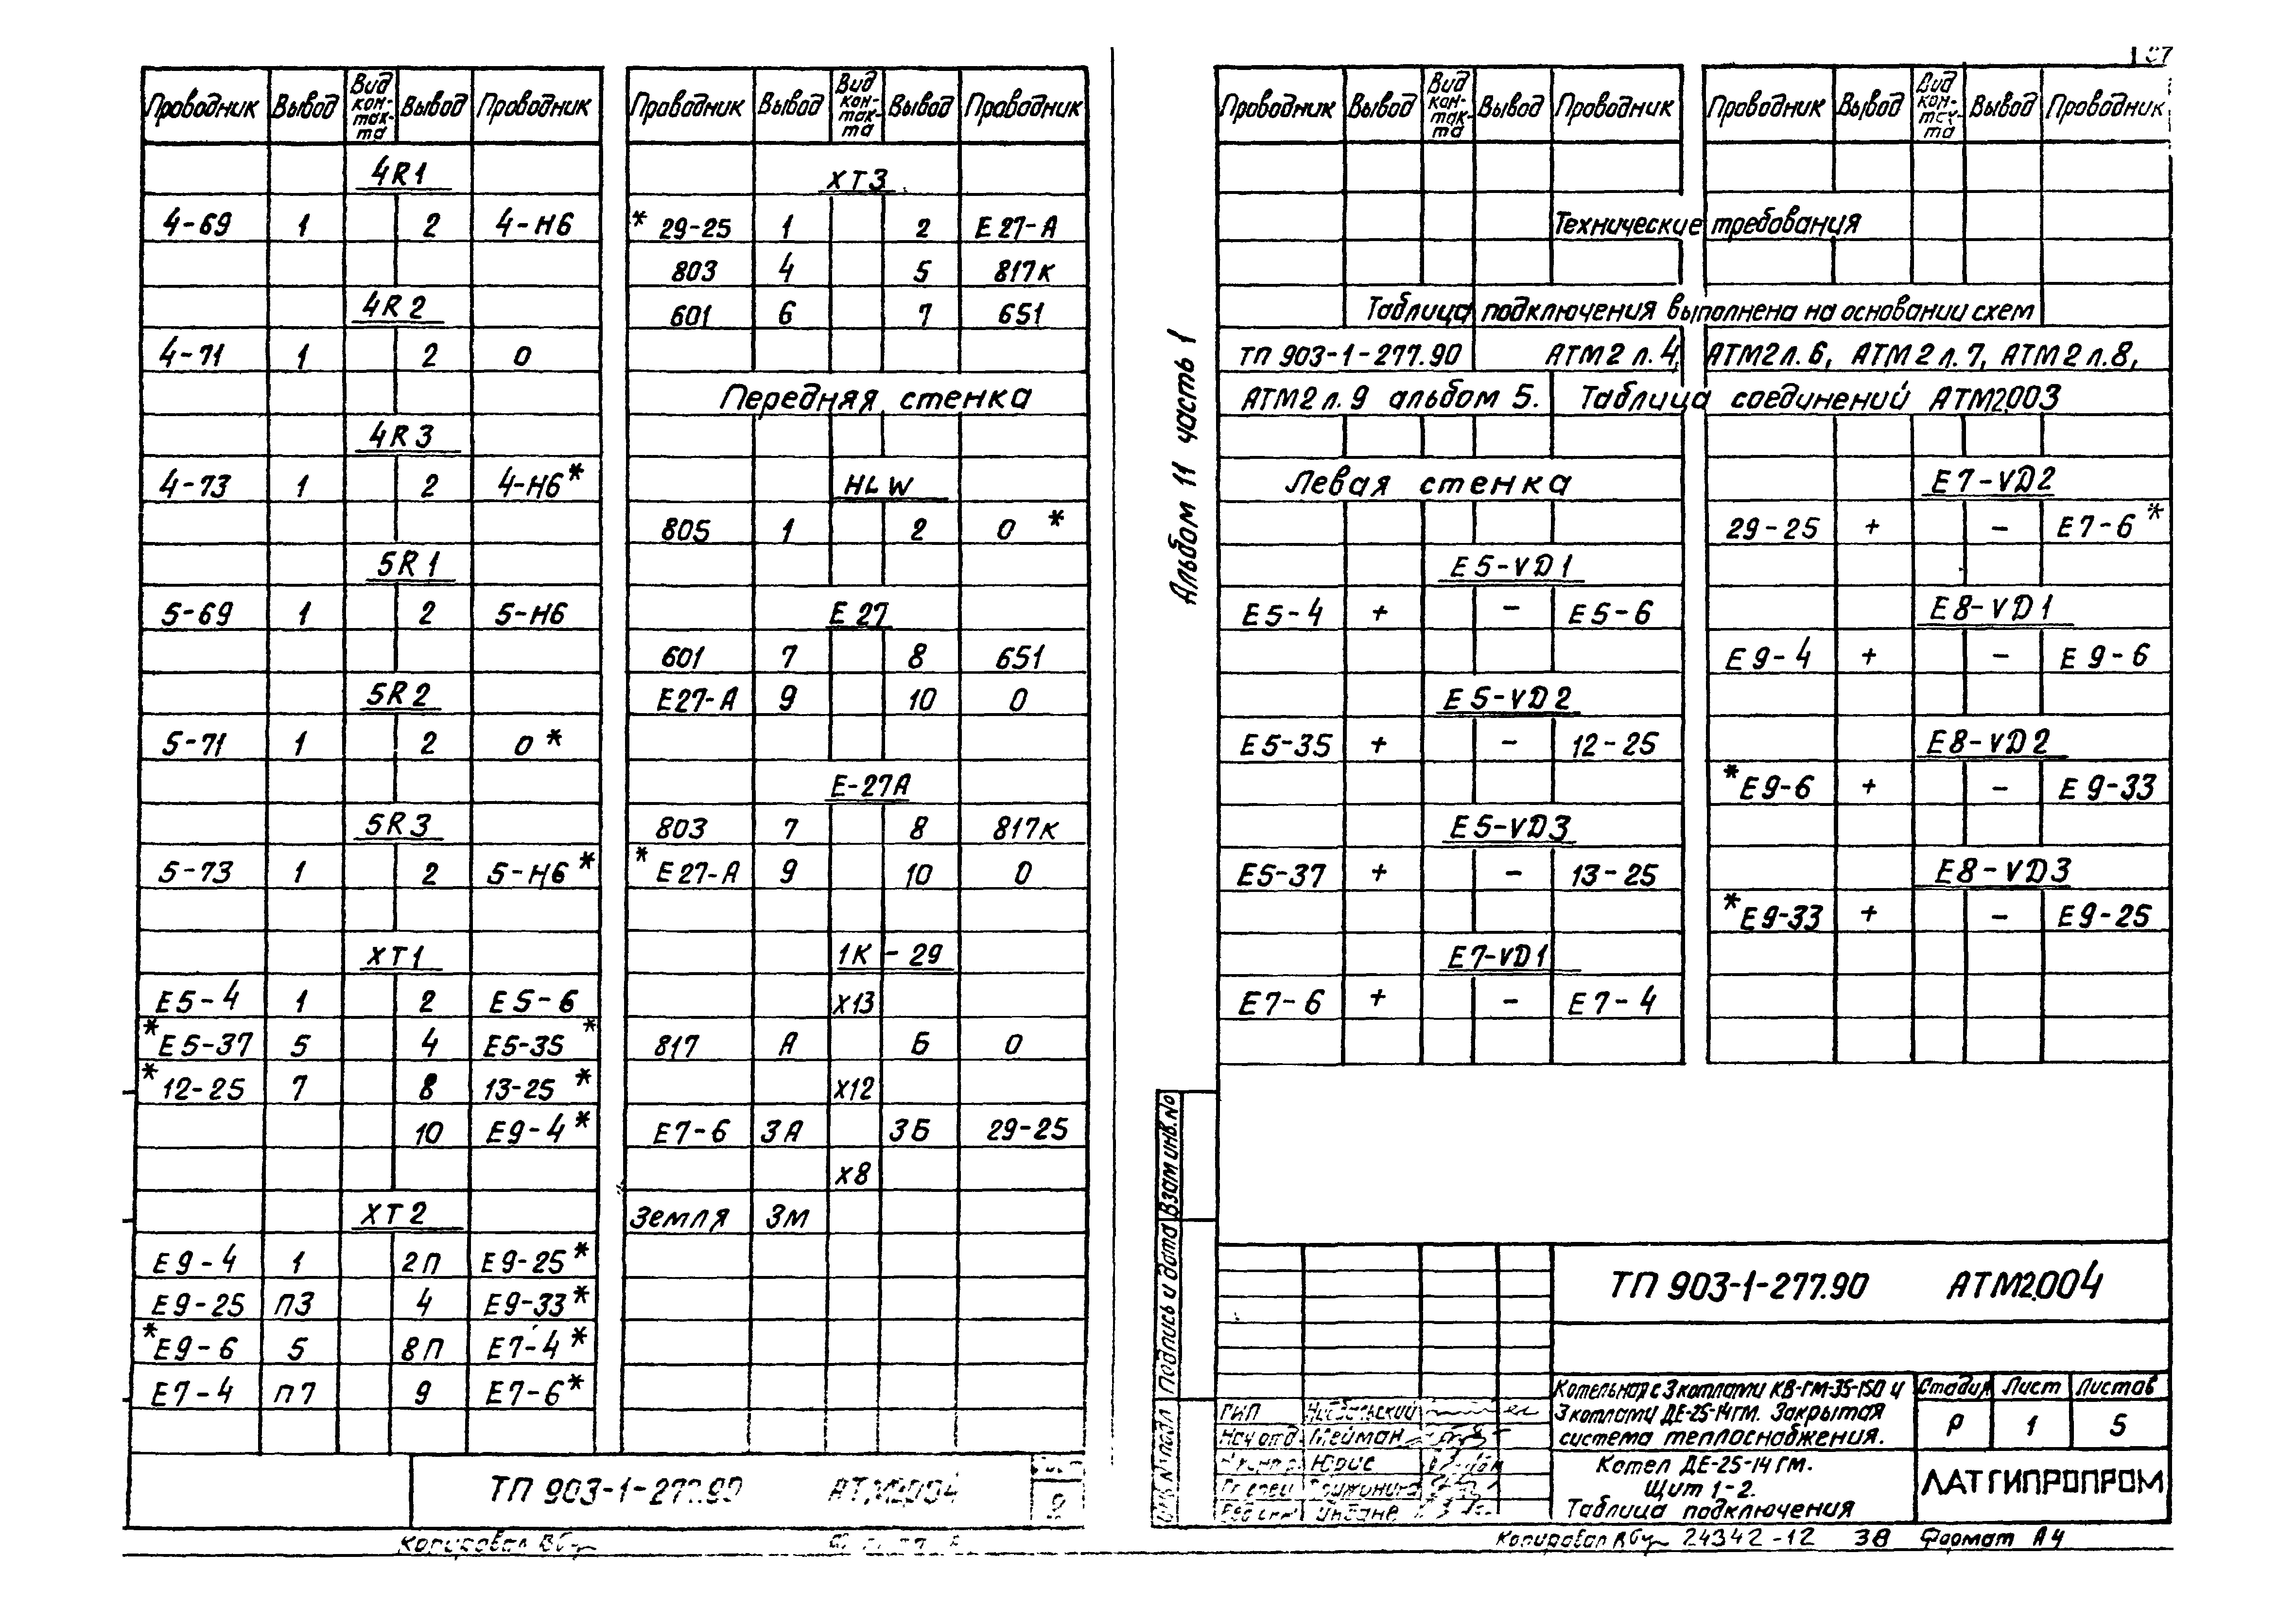 Проводник Вывод Вид контакта Вывод Проводник
4R1
4-69 1 2 4-Н6
4R2
4-71 1 2 0
4R3
4-73 1 2 4-Н6*
5R1
5-69 1 2 5-Н6
5R2
5-71 1 2 0*
5R3
5-73 1 2 5-Н6*
ХТ1
Е5-4 1 2 Е5-6
*Е5-37 5 4 Е5-35*
*12-25 7 8 13-25*
10 Е9-4*
ХТ2
Е9-4 1 2П Е9-25*
Е9-25 П3 4 Е9-33*
*Е9-6 5 8П Е7-4*
Е7-4 П7 9 Е7-6*
Проводник Вывод Вид контакта Вывод Проводник
ХТ3
*29-25 1 2 Е27-А
803 4 5 817К
601 6 7 651
Передняя стенка
HLW
805 1 2 0*
Е27
601 7 8 651
Е27-А 9 10 0
Е-27А
803 7 8 817К
*Е27-А 9 10 0
1К-29
Х13
817 А Б 0
Х12
Е7-6 3А 3Б 29-25
Х8
Земля Зм
ТП 903-1-277.90 АТМ2.004
Копировал
Альбом 11 часть 1
Проводник Вывод Вид контакта Вывод Проводник
Проводник Вывод Вид контакта Вывод Проводник
Технические требования
Таблица подключения выполнена на основании схем
ТП 903-1-277.90 АТМ2 л.4, АТМ2 л.6, АТМ2 л.7, АТМ2 л.8,
АТМ2 л.9 альбом 5. Таблица соединений АТМ2.003
Левая стенка
Е5-VD1
Е5-4 + - Е5-6
Е5-VD2
Е5-35 + - 12-25
Е5-VD3
Е5-37 + - 13-25
Е7-VD1
Е7-6 + - Е7-4
Е7-VD2
29-25 + - Е7-6*
Е8-VD1
Е9-4 + - Е9-6
Е8-VD2
*Е9-6 + - Е9-33
Е8-VD3
*Е9-33 + - Е9-25
Взам инв.№
Подпись и дата
ТП 903-1-277.90 АТМ2.004
Котельная с 3 котлами КВ-ГМ-35-150 и
3 котлами ДЕ-25-14ГМ. Закрытая
система теплоснабжения.
Стадия Лист Листов
Р 1 5
Котел ДЕ-25-14 ГМ.
Щит 1-2.
Таблица подключения
ЛАТГИПРОПРОМ
ГИП
Нач отд. Мейман
Юрис
Копировал 24342-12 38 Формат А4